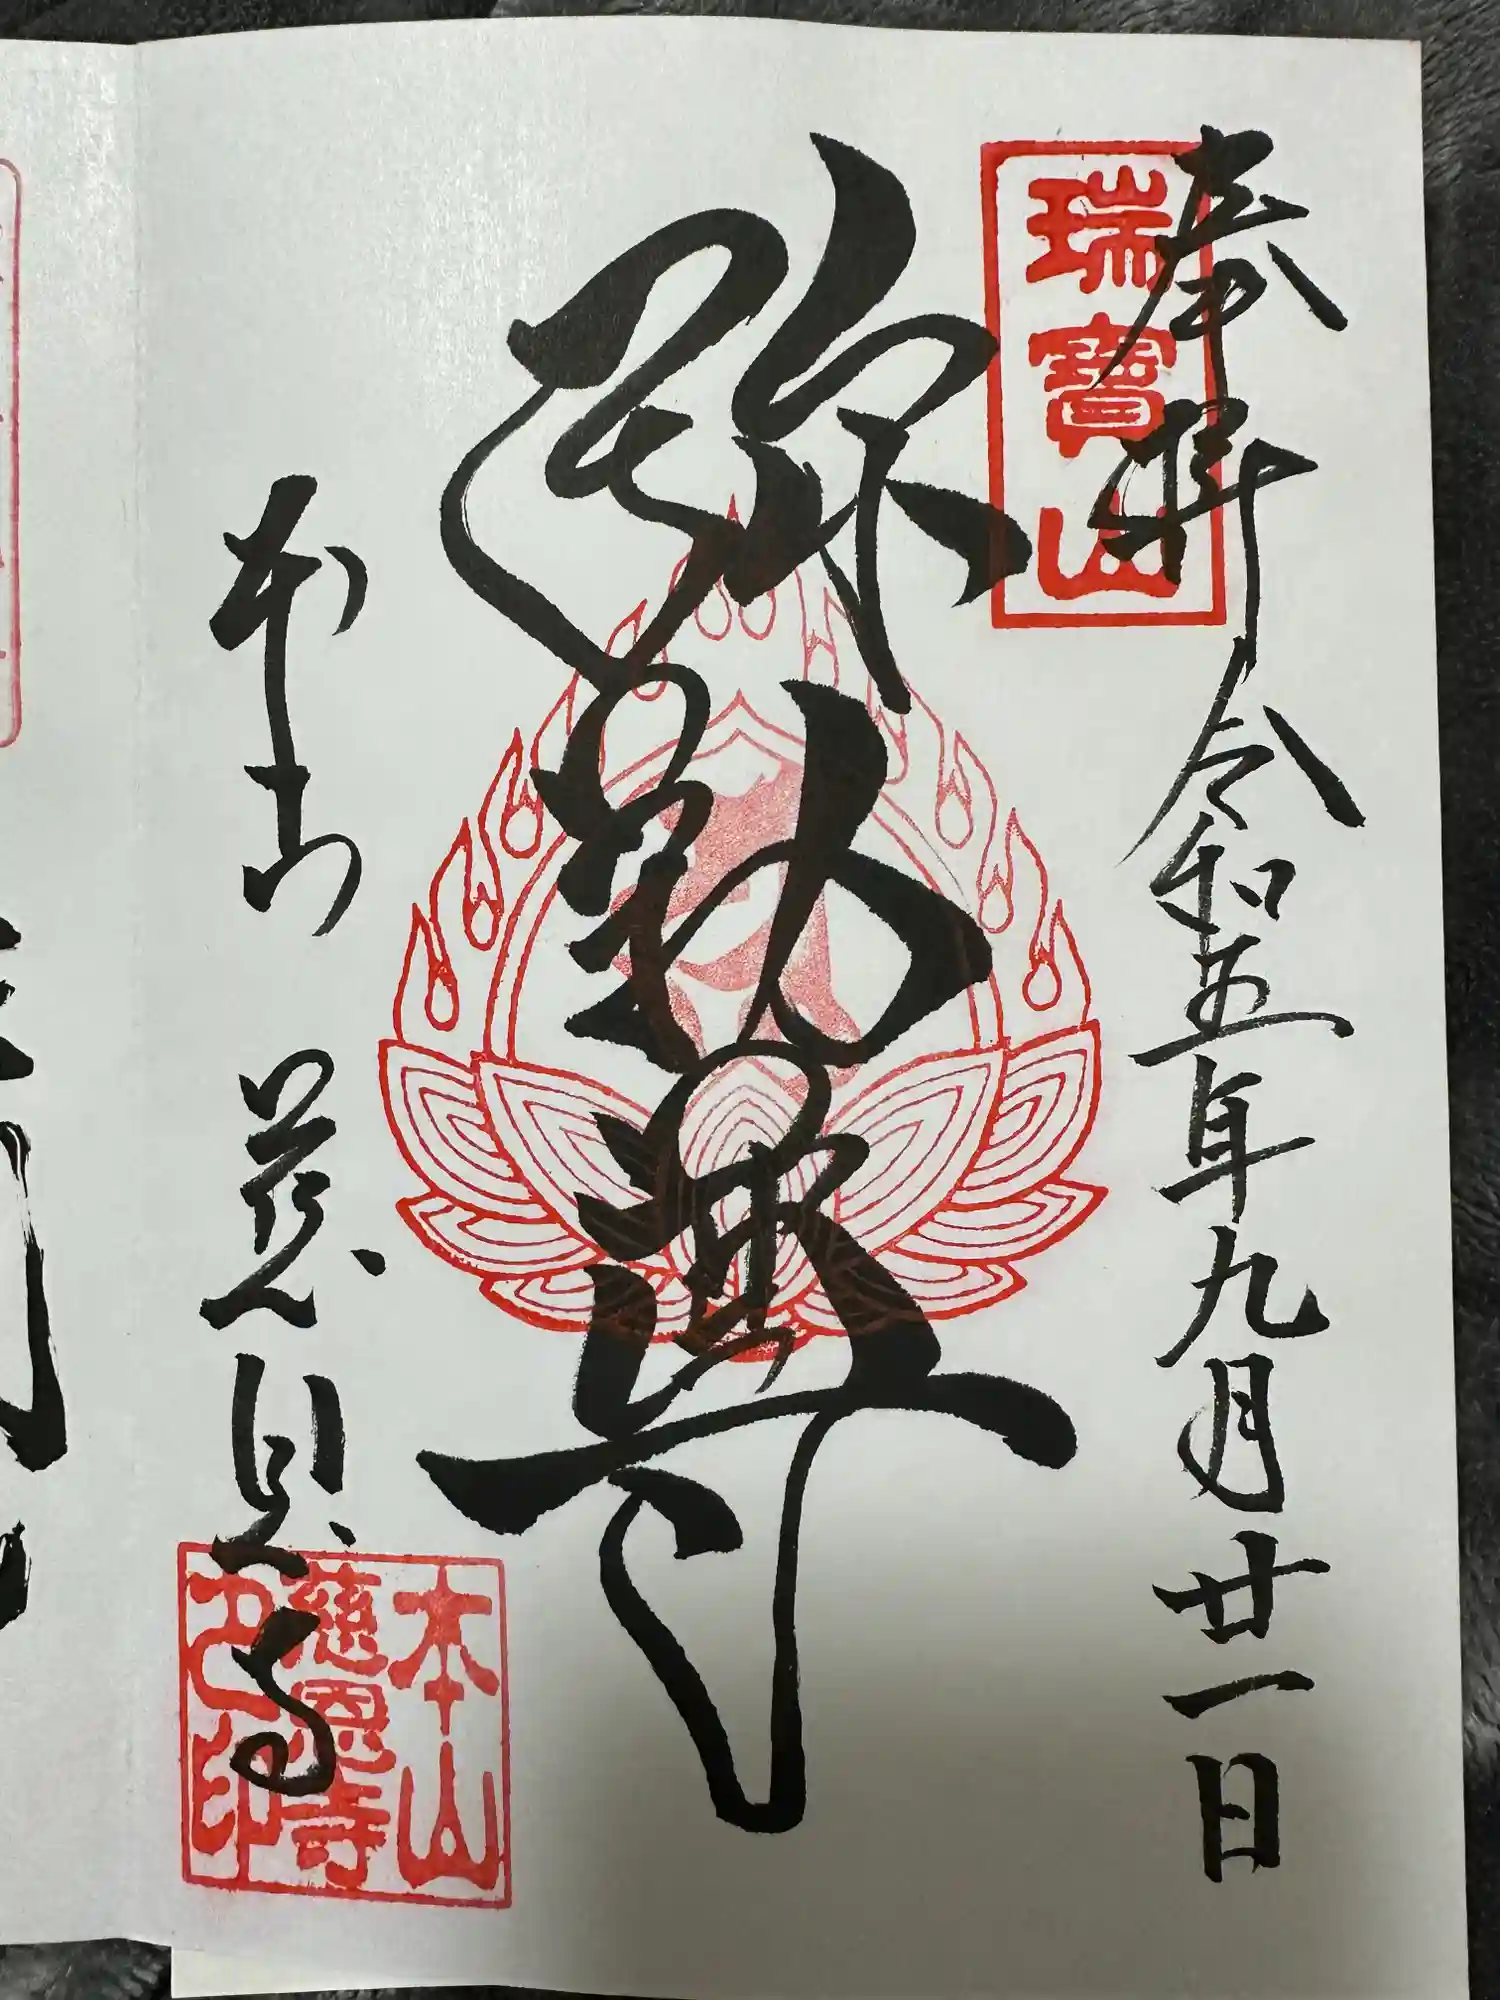 奉拝 令和五年九月廿一日
瑞寶山
弥勒尊
本山 慈恩寺
本山
慈恩寺
之印